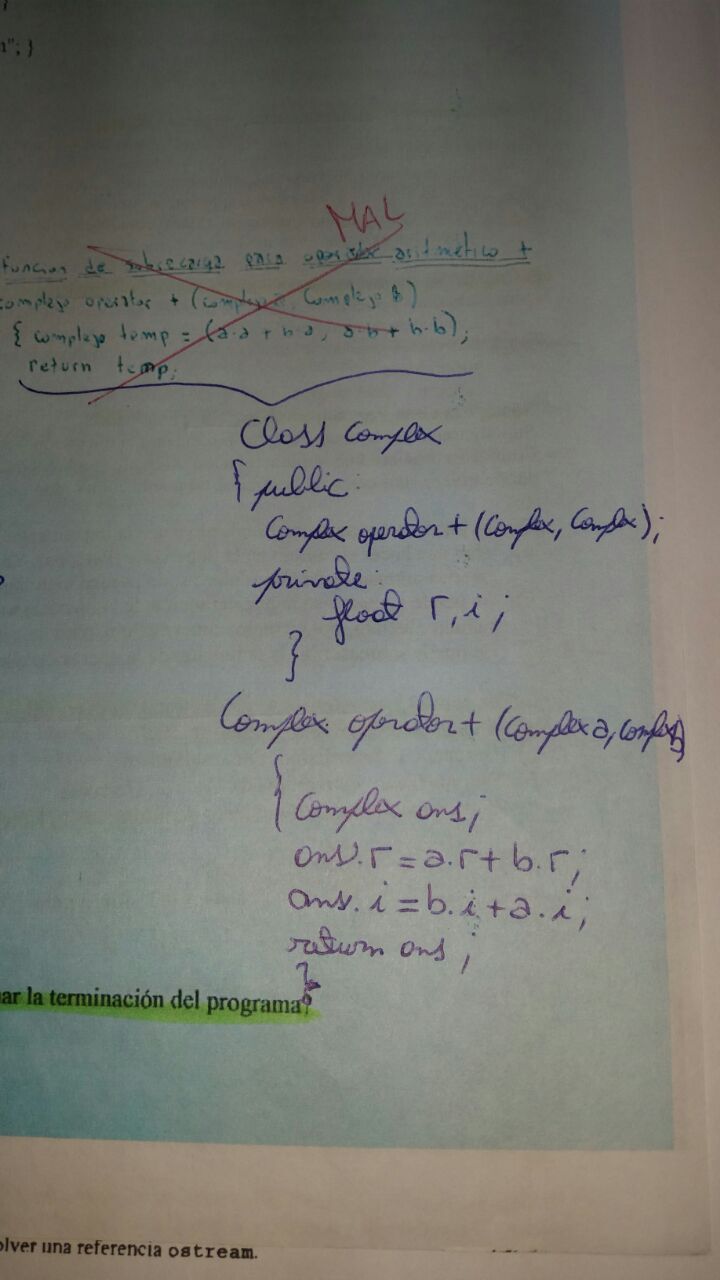 n"; }
MAL
función de sobrecarga para operador aritmético +
complejo operator + (complejo a, complejo B)
{ complejo temp = (a.a + b.a, a.b + b.b);
return temp;
Class Complex
{ public:
Complex operator + (Complex, Complex);
private:
float r, i ;
}
Complex operator + (Complex a, complex b)
{
Complex ans;
ans.r = a.r + b.r;
ans.i = b.i + a.i;
return ans ;
}
ar la terminación del programa?
olver una referencia ostream.